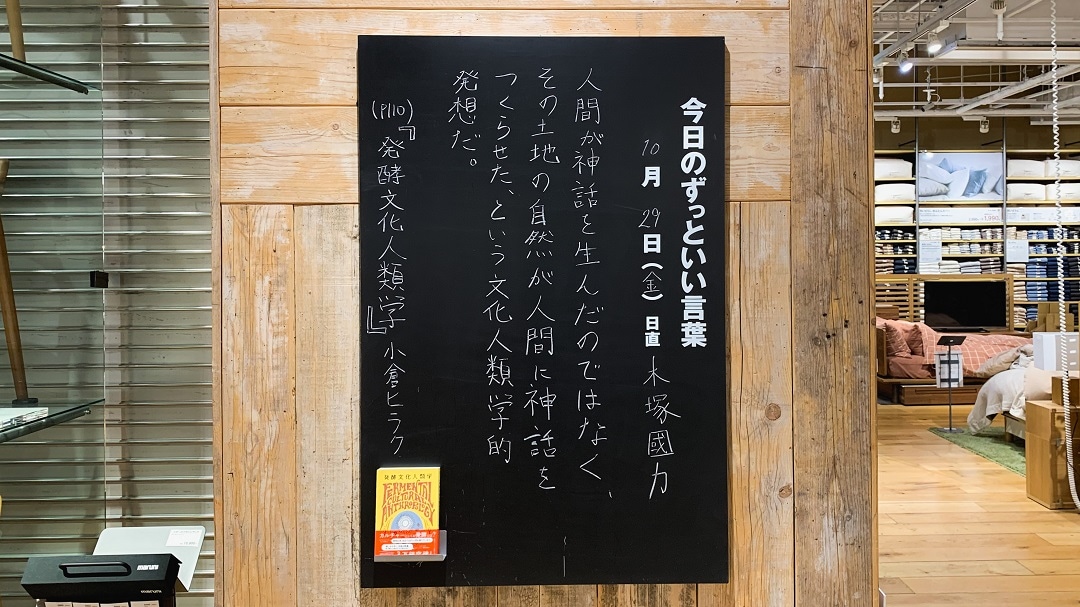 今日のずっといい言葉
10月29日(金) 日直 木塚國力
人間が神話を生んだのではなく、
その土地の自然が人間に神話を
つくらせた、という文化人類学的
発想だ。
(P110)『発酵文化人類学』小倉ヒラク
発酵文化人類学
FERMENTATION
CULTURAL
ANTHROPOLOGY
maruni